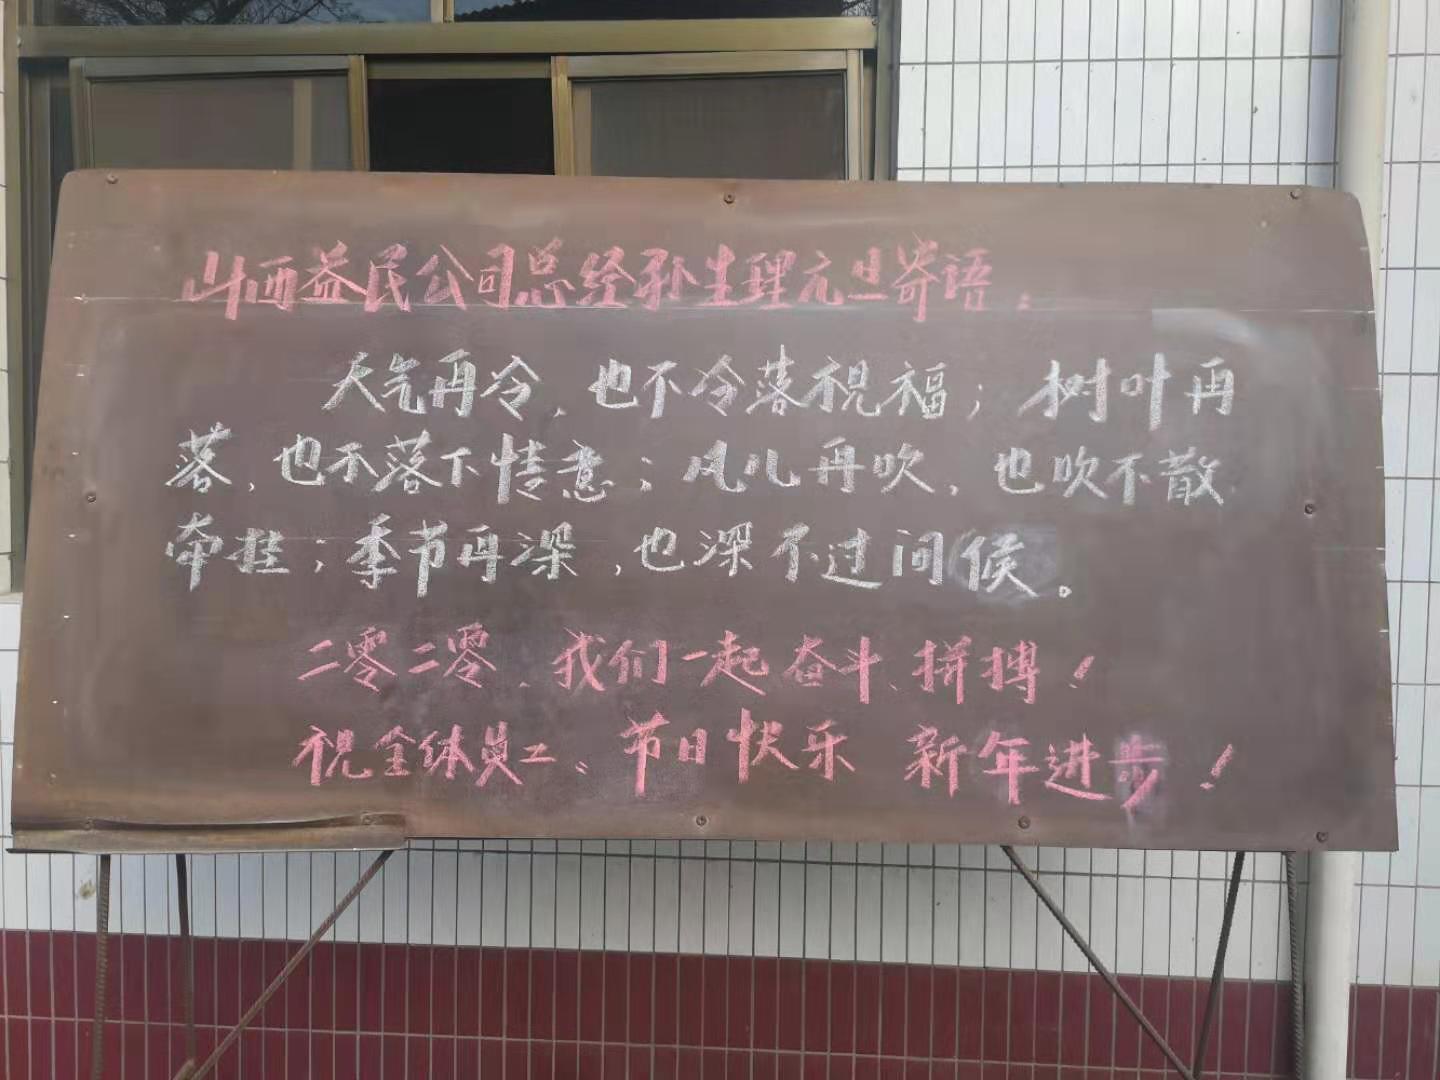 山西益民公司总经孙生理元旦寄语：
天气再冷、也不冷落祝福；树叶再
落、也不落下情意；风儿再吹，也吹不散
牵挂；季节再深，也深不过问候。
二零二零、我们一起奋斗、拼搏！
祝全体员工、节日快乐 新年进步！